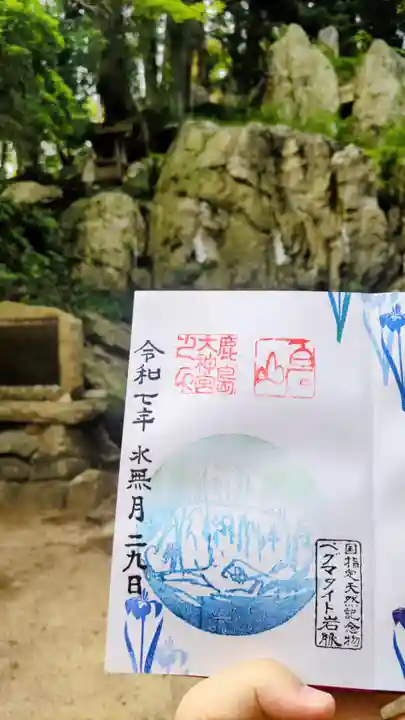 鹿島
大神宮
之印
令和七年 水無月 二九日
国指定天然記念物
ペグマタイト岩脈